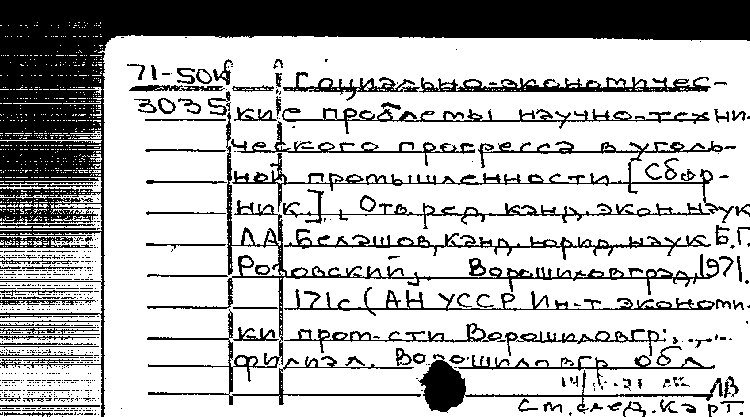 71-50к Социально-экономичес-
3035 кие проблемы научно-техни-
ческого прогресса в уголь-
ной промышленности [Сбор-
ник]. Отв. ред. канд. экон. наук
Л.А. Белашов, канд. юрид. наук Б.Г.
Розовский. Ворошиловград, 1971.
171с (АН УССР. Ин-т экономи-
ки пром-сти Ворошиловгр.
филиал. Ворошиловгр. обл.
ЛВ
См. след. карт